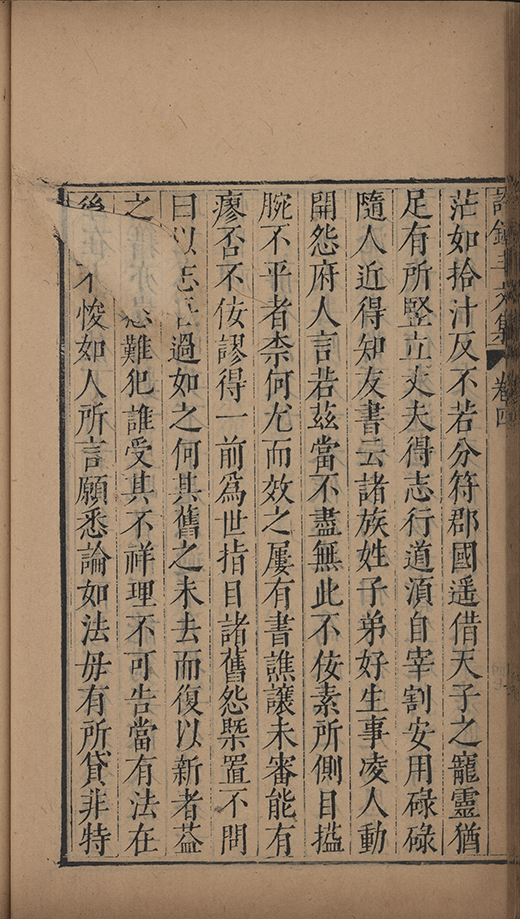 許鍾斗文集 卷四
茫如拾汁反不若分符郡國遥借天子之寵靈猶
足有所竪立丈夫得志行道湏自宰割安用碌碌
隨人近得知友書云諸族姓子弟好生事凌人動
開怨府人言若兹當不盡無此不佞素所側目搤
腕不平者柰何尤而效之屢有書譙讓未審能有
瘳否不佞謬得一前爲世指目諸舊怨槩置不問
曰以志吾過如之何其舊之未去而復以新者葢
之難犯誰受其不祥理不可告當有法在
後不悛如人所言願悉論如法毋有所貸非特